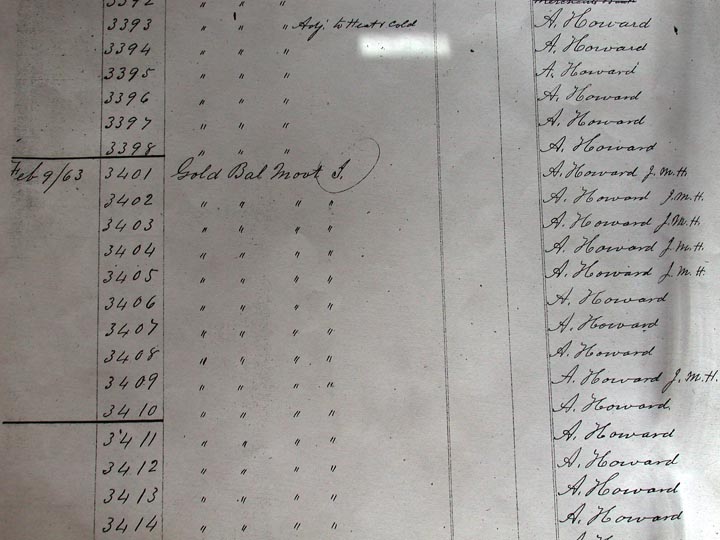 3392 " " "
3393 " " " Adj. to Heat & Cold A. Howard
3394 " " " A. Howard
3395 " " " A. Howard
3396 " " " A. Howard
3397 " " " A. Howard
3398 " " " A. Howard
Feb 9/63 3401 Gold Bal Movt I. A. Howard J. M. H
3402 " " " " A. Howard J. M. H.
3403 " " " " A. Howard J. M. H.
3404 " " " " A. Howard J. M. H.
3405 " " " " A. Howard J. M. H.
3406 " " " " A. Howard
3407 " " " " A. Howard
3408 " " " " A. Howard
3409 " " " " A. Howard J. M. H.
3410 " " " " A. Howard
3411 " " " " A. Howard
3412 " " " " A. Howard
3413 " " " " A. Howard
3414 " " " " A. Howard